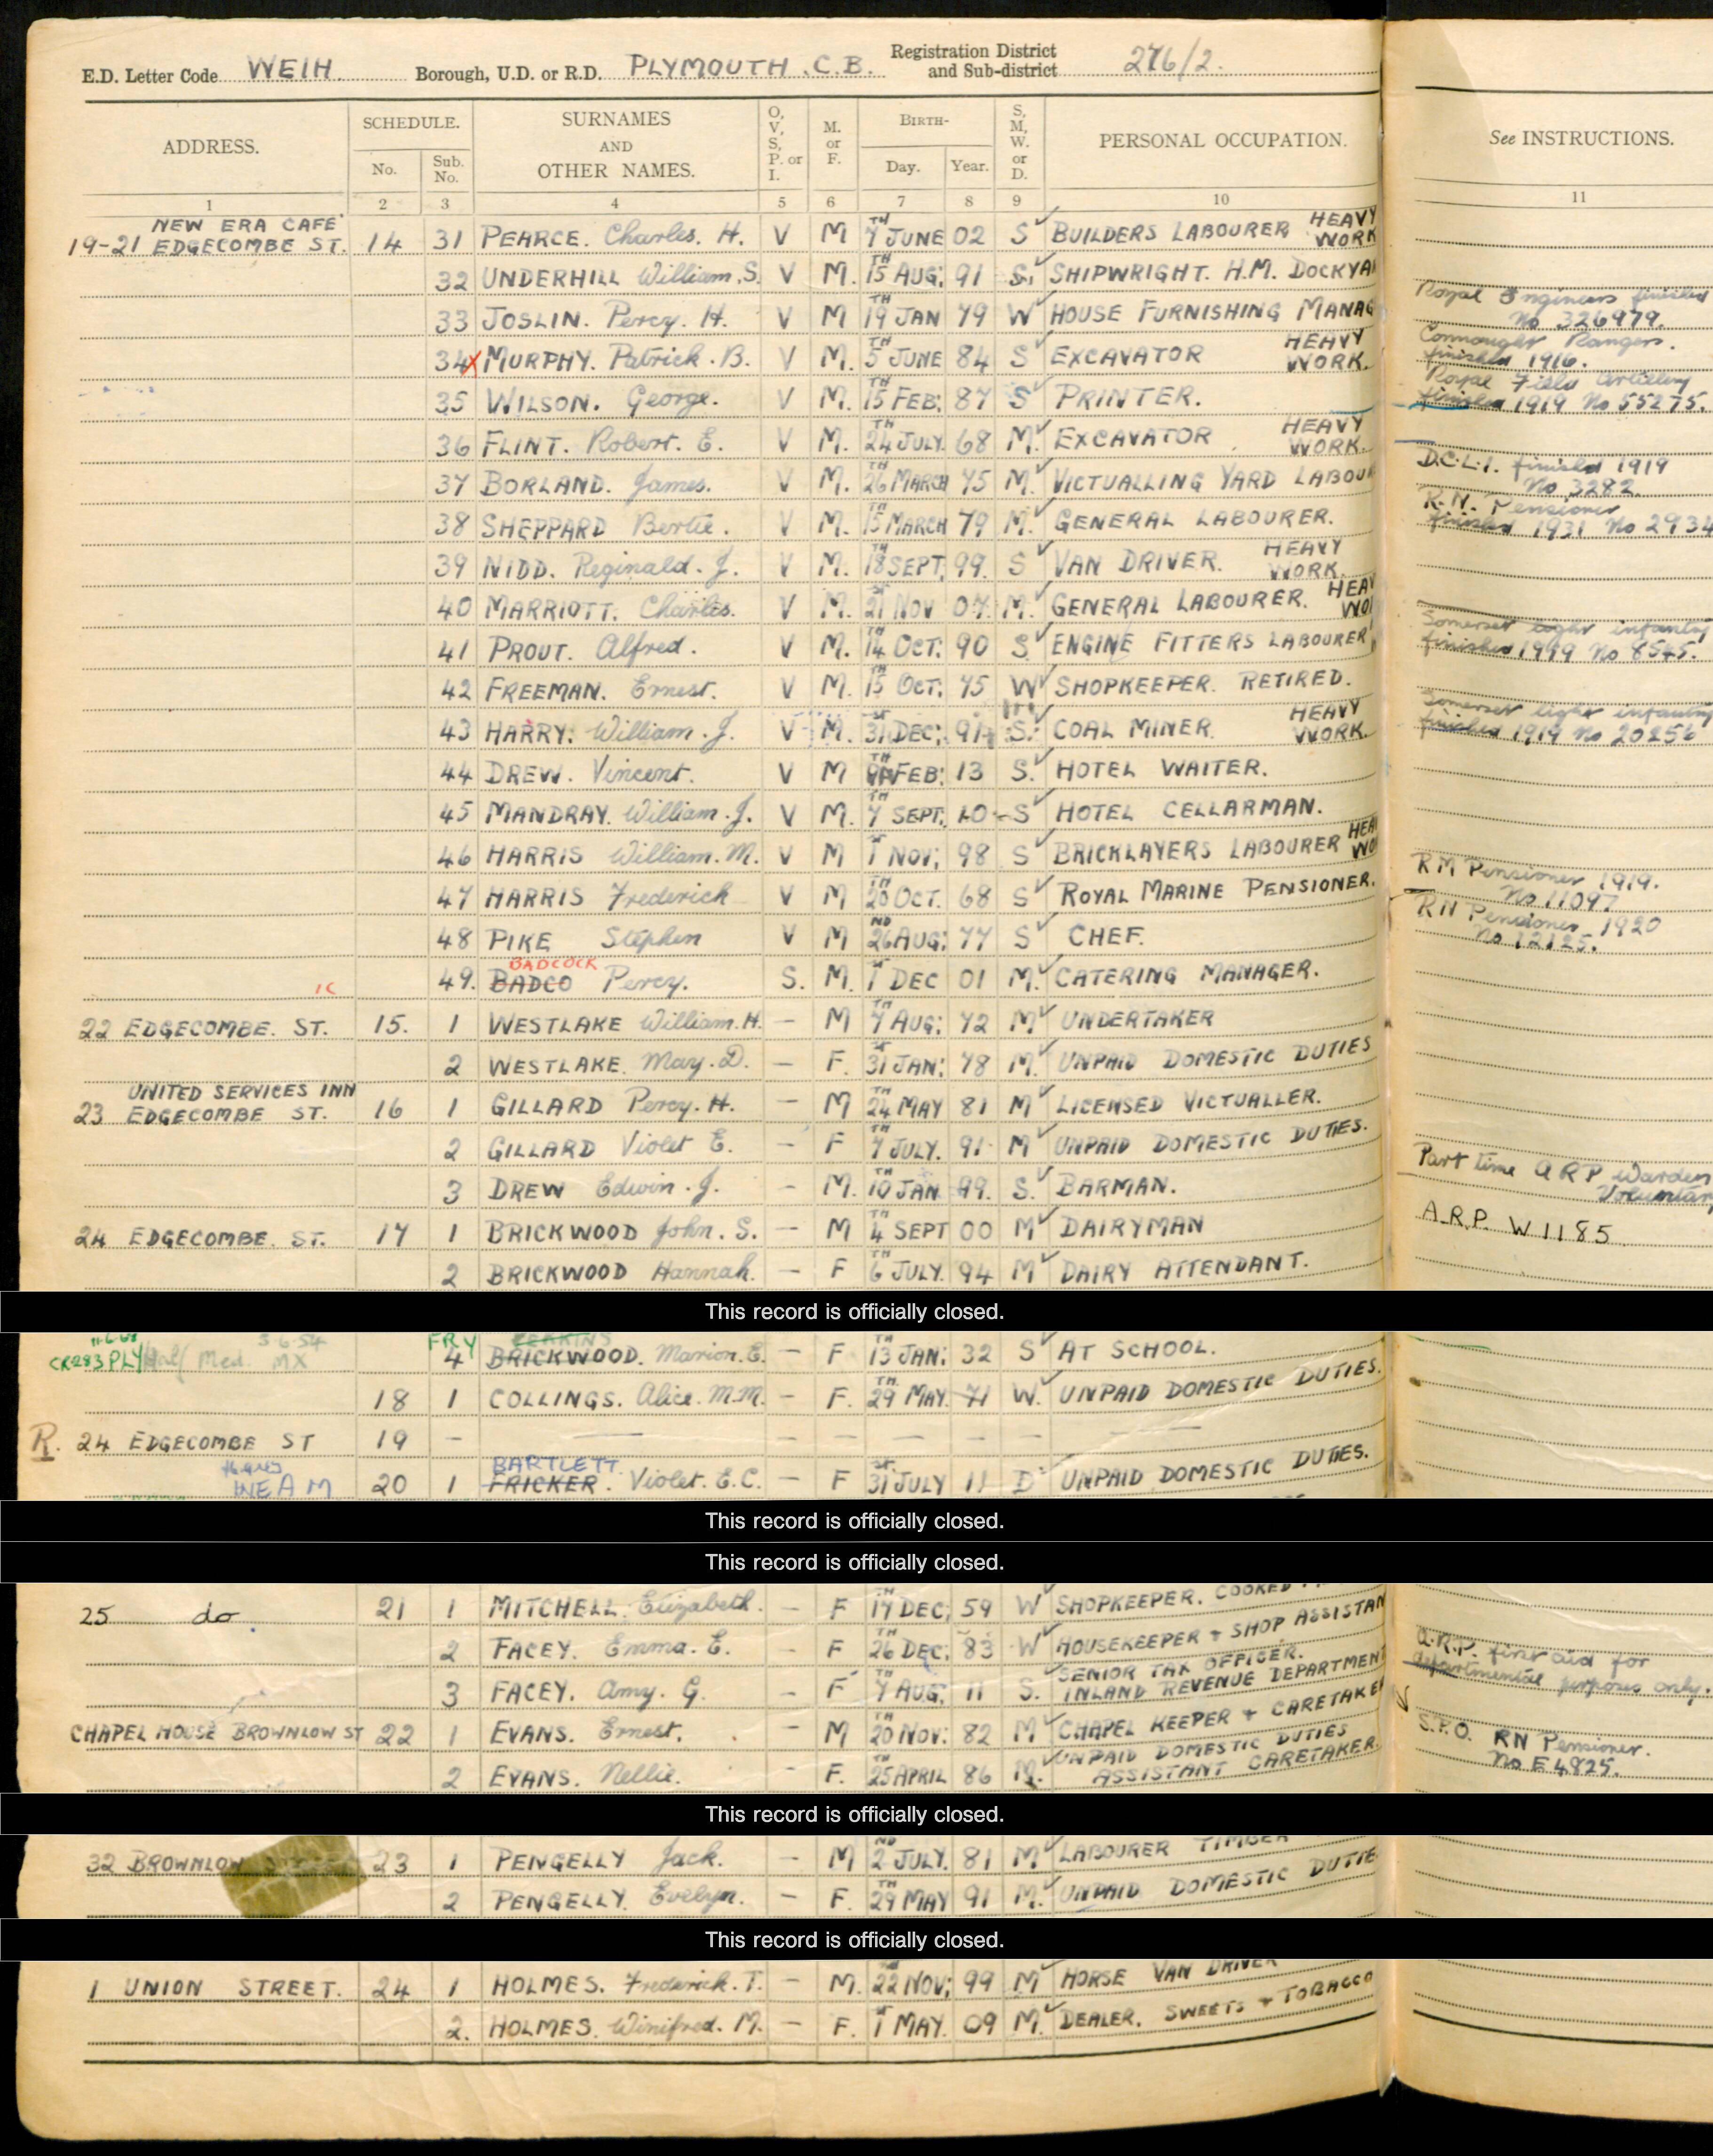 E.D. Letter Code WEIH. Borough, U.D. or R.D. PLYMOUTH. C.B. Registration District and Sub-district 276/2.
ADDRESS. SCHEDULE. No. Sub. No. SURNAMES AND OTHER NAMES. O, V, S, P. or I. M. or F. BIRTH- Day. Year. S, M, W. or D. PERSONAL OCCUPATION. See INSTRUCTIONS.
1 2 3 4 5 6 7 8 9 10 11
NEW ERA CAFE
19-21 EDGECOMBE ST. 14 31 PEARCE. Charles. H. V M 7TH JUNE 02 S BUILDERS LABOURER HEAVY WORK
32 UNDERHILL William. S. V M. 15TH AUG: 91 S. SHIPWRIGHT. H.M. DOCKYA
33 JOSLIN. Percy. H. V M 19TH JAN 79 W HOUSE FURNISHING MANAG Royal Engineers finished No 326979.
34 MURPHY. Patrick. B. V M. 5TH JUNE 84 S EXCAVATOR HEAVY WORK. Connaught Rangers. finished 1916.
35 WILSON. George. V M. 15TH FEB: 87 S PRINTER. Royal Field Artillery finished 1919 No 55275.
36 FLINT. Robert. E. V M. 24TH JULY. 68 M. EXCAVATOR HEAVY WORK.
37 BORLAND. James. V M. 26TH MARCH 75 M. VICTUALLING YARD LABOU D.C.L.I. finished 1919 No 3282.
38 SHEPPARD Bertie. V M. 15TH MARCH 79 M. GENERAL LABOURER. R.N. Pensioner finished 1931 No 2934
39 NIDD. Reginald. J. V M. 18TH SEPT. 99. S VAN DRIVER. HEAVY WORK.
40 MARRIOTT. Charles. V M. 21ST NOV 07. M. GENERAL LABOURER. HEA WO
41 PROUT. Alfred. V M. 14TH OCT: 90 S. ENGINE FITTERS LABOURER Somerset light infantry finished 1919 No 8545.
42 FREEMAN. Ernest. V M. 15TH OCT: 75 W SHOPKEEPER. RETIRED.
43 HARRY. William. J. V M. 31ST DEC: 91 S. COAL MINER. HEAVY WORK. Somerset light infantry finished 1919 No 20256
44 DREW. Vincent. V M FEB: 13 S. HOTEL WAITER.
45 MANDRAY. William. J. V M. 7TH SEPT. 10 S HOTEL CELLARMAN.
46 HARRIS William. M. V M 1ST NOV; 98 S BRICKLAYERS LABOURER HEA WO
47 HARRIS Frederick V M 20TH OCT. 68 S ROYAL MARINE PENSIONER. RM Pensioner 1919. No 11097
48 PIKE Stephen V M 26ND AUG: 77 S CHEF. RN Pensioner 1920 No 12125.
BADCOCK
49. BADCO Percy. S. M. 1ST DEC 01 M. CATERING MANAGER.
22 EDGECOMBE. ST. 15. 1 WESTLAKE William. H. – M 7TH AUG: 72 M UNDERTAKER
2 WESTLAKE. May. D. – F. 31ST JAN: 78 M. UNPAID DOMESTIC DUTIES
UNITED SERVICES INN
23 EDGECOMBE ST. 16 1 GILLARD Percy. H. – M 24TH MAY 81 M LICENSED VICTUALLER.
2 GILLARD Violet E. – F 7TH JULY. 91 M UNPAID DOMESTIC DUTIES.
3 DREW Edwin. J. – M. 10TH JAN 99. S. BARMAN. Part time A R P Warden Voluntary
24 EDGECOMBE. ST. 17 1 BRICKWOOD John. S. – M 4TH SEPT 00 M DAIRYMAN A.R.P. W 1185
2 BRICKWOOD Hannah. – F 6TH JULY. 94 M DAIRY ATTENDANT.
This record is officially closed.
CR283 PLY 3-6-54 MX FRY
4 BRICKWOOD. Marion. E. – F 13TH JAN: 32 S AT SCHOOL.
18 1 COLLINGS. Alice. M.M. – F. 29TH MAY. 71 W. UNPAID DOMESTIC DUTIES.
R. 24 EDGECOMBE ST 19 – — – – – – – —
BARTLETT
WEAM 20 1 FRICKER. Violet. E.C. – F 31ST JULY 11 D UNPAID DOMESTIC DUTIES.
This record is officially closed.
This record is officially closed.
25 do 21 1 MITCHELL Elizabeth. – F 17TH DEC; 59 W SHOPKEEPER. COOKED
2 FACEY. Emma. E. – F 26TH DEC; 83 W HOUSEKEEPER & SHOP ASSISTAN
3 FACEY. Amy. G. – F 7TH AUG. 11 S. SENIOR TAX OFFICER. INLAND REVENUE DEPARTMENT A.R.P. first aid for departmental purposes only.
CHAPEL HOUSE BROWNLOW ST 22 1 EVANS. Ernest. – M 20TH NOV: 82 M CHAPEL KEEPER & CARETAKE S.P.O. RN Pensioner. No E 4825.
2 EVANS. Nellie. – F. 25TH APRIL 86 M. UNPAID DOMESTIC DUTIES ASSISTANT CARETAKER.
This record is officially closed.
32 BROWNLOW 23 1 PENGELLY Jack. – M 2ND JULY. 81 M LABOURER TIMBER
2 PENGELLY. Evelyn. – F. 29TH MAY 91 M. UNPAID DOMESTIC DUTIE
This record is officially closed.
1 UNION STREET. 24 1 HOLMES. Frederick. T. – M. 22 NOV; 99 M HORSE VAN DRIVER
2. HOLMES. Winifred. M. – F. 1ST MAY. 09 M. DEALER. SWEETS & TOBACCO